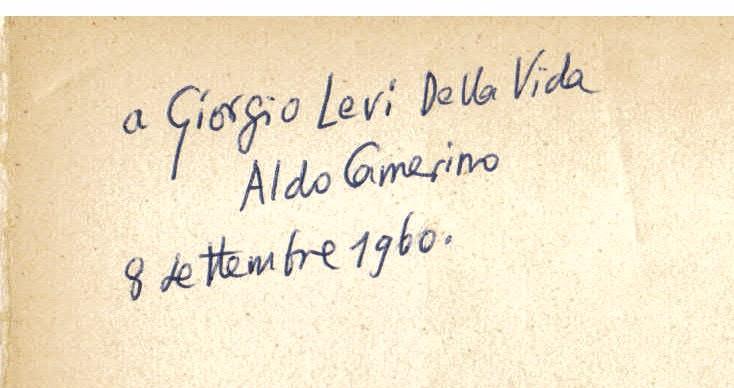 a Giorgio Levi Della Vida
Aldo Camerino
8 settembre 1960.